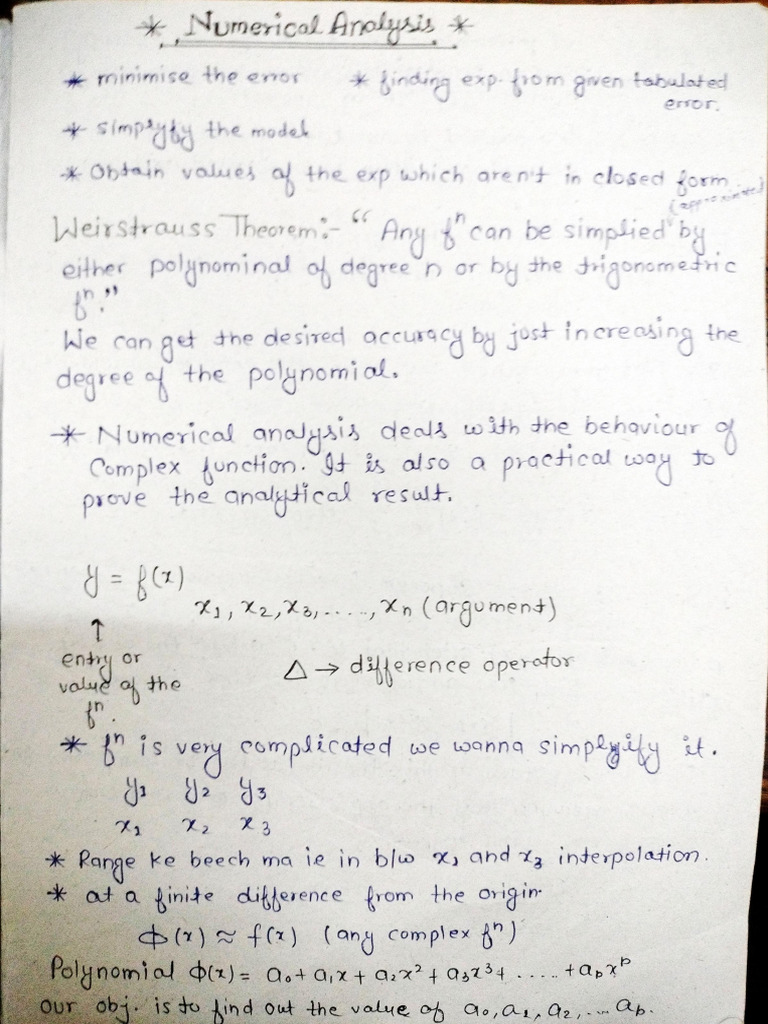 * Numerical Analysis *
* minimise the error * finding exp. from given tabulated
error.
* simplyfy the model
* Obtain values of the exp which aren't in closed form
(approximated)
Weirstrauss Theorem:- "Any fⁿ can be simplied by
either polynominal of degree n or by the trigonometric
fⁿ."
We can get the desired accuracy by just increasing the
degree of the polynomial.
* Numerical analysis deals with the behaviour of
Complex function. It is also a practical way to
prove the analytical result.
y = f(x)
x₁, x₂, x₃, ....., xₙ (argument)
↑
entry or
value of the
fⁿ.
△ → difference operator
* fⁿ is very complicated we wanna simplyify it.
y₁ y₂ y₃
x₁ x₂ x₃
* Range ke beech ma ie in b/w x₁ and x₃ interpolation.
* at a finite difference from the origin
ϕ(x) ≈ f(x) (any complex fⁿ)
Polynomial ϕ(x) = a₀ + a₁x + a₂x² + a₃x³ + ..... + aₚxᵖ
our obj. is to find out the value of a₀, a₁, a₂, ... aₚ.